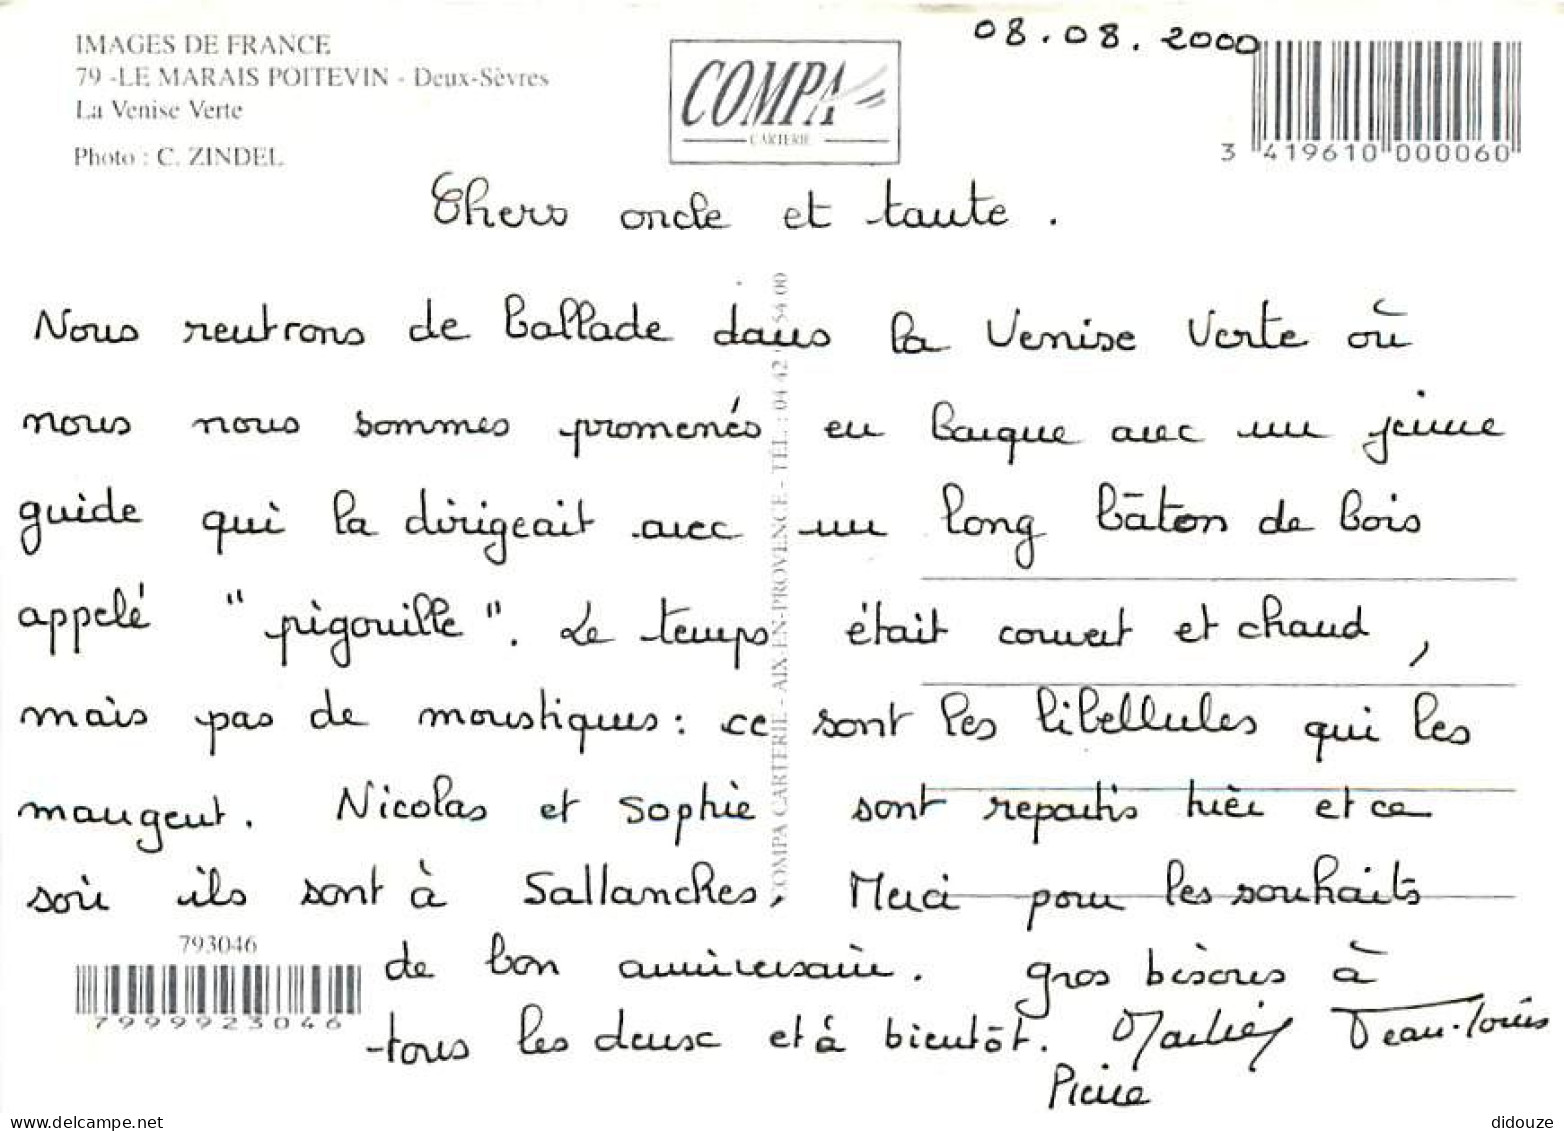 08.08.2000
IMAGES DE FRANCE
79 -LE MARAIS POITEVIN - Deux-Sèvres
La Venise Verte
Photo : C. ZINDEL
COMPA
CARTERIE
3 419610 000060
Chers oncle et tante.
Nous rentrons de ballade dans la Venise Verte où
nous nous sommes promenés en barque avec un jeune
guide qui la dirigeait avec un long bâton de bois
appelé "pigouille". Le temps était couvert et chaud,
mais pas de moustiques : ce sont les libellules qui les
mangent. Nicolas et Sophie sont repartis hier et ce
soir ils sont à Sallanches. Merci pour les souhaits
de bon anniversaire. Gros bisous à
tous les deux et à bientôt. Jean-Louis
Pierre
COMPA CARTERIE - AIX-EN-PROVENCE - TÉL. : 04 42 54 00
793046
7999923046
delcampe.net
didouze